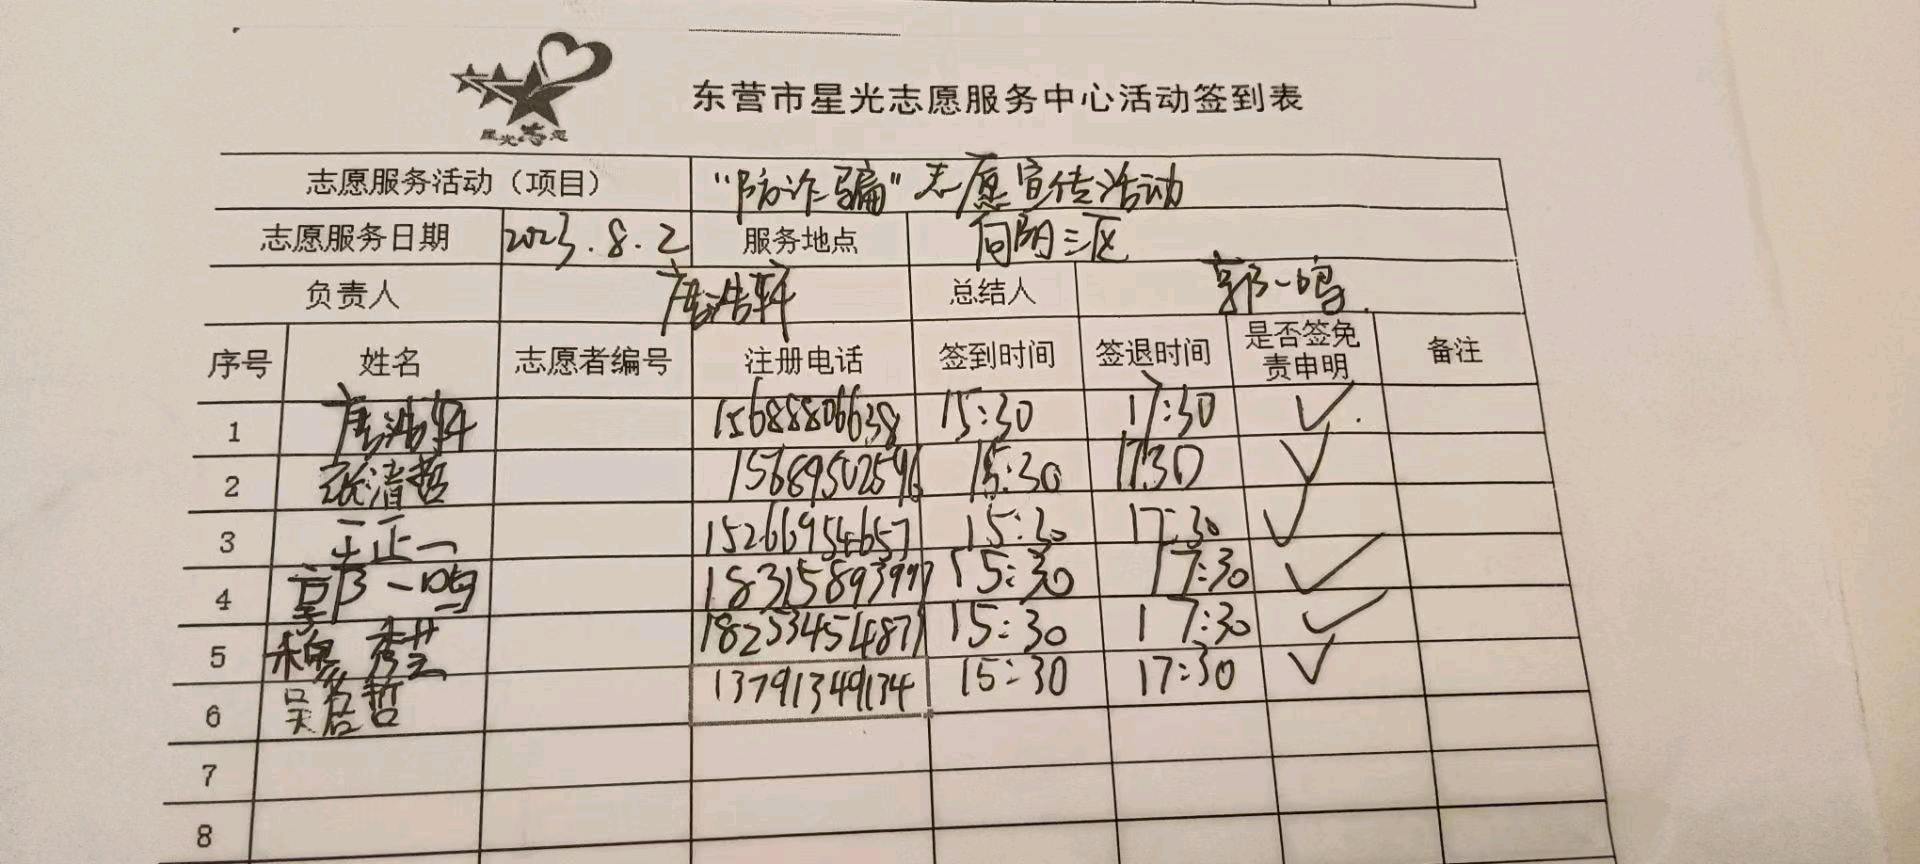 星光志愿
东营市星光志愿服务中心活动签到表
志愿服务活动（项目） “防诈骗”志愿宣传活动
志愿服务日期 2023.8.2 服务地点 向阳三区
负责人 唐浩轩 总结人 郭一鸣
序号 姓名 志愿者编号 注册电话 签到时间 签退时间 是否签免责申明 备注
1 唐浩轩 15688806638 15:30 17:30 ✓
2 张清哲 15:30 17:30 ✓
3 王正一 15266954657 15:30 17:30 ✓
4 郭一鸣 15:30 17:30 ✓
5 穆 15:30 17:30 ✓
6 吴启哲 13791349134 15:30 17:30 ✓
7
8